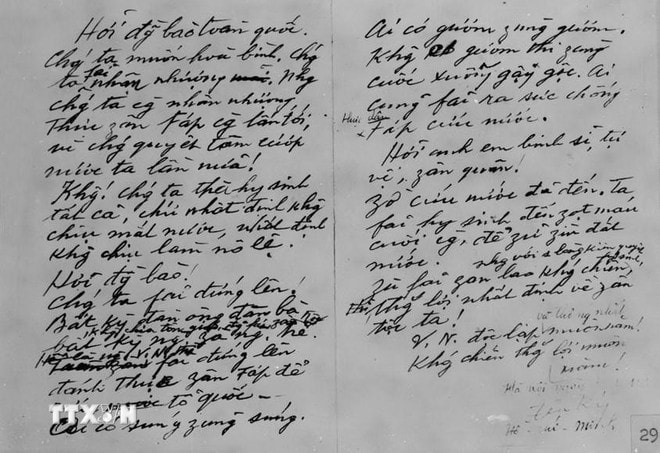 Hỡi đg̃ bào toàn quốc.
Chǵ ta muốn hoà bình, chǵ
ta fải nhân nhượng. Nhg
chǵ ta cg̀ nhân nhượng
Thực zân Fáp cg̀ lấn tới,
vì chǵ quyết tâm cướp
nước ta lần nữa!
Khg! chǵ ta thà hy sinh
tất cả, chứ nhất định khg
chịu mất nước, nhất định
khg chịu làm nô lệ.
Hỡi đg̀ bào!
Chǵ ta fải đứng lên!
Bất kỳ đàn ông đàn bà
bất kỳ ng già ng trẻ.
fải đứng lên
đánh Thực zân Fáp để
tổ quốc –
Ai có súng zùng súng.
Ai có gươm zùng gươm.
Khg có gươm thì zùng
cuốc xuổng gậy gộc. Ai
cũng fải ra sức chống
Thực zân Fáp cứu nước.
Hỡi anh em binh sĩ, tự
vệ, zân quân!
Zờ cứu nước đã đến. Ta
fải hy sinh đến zọt máu
cuối cg̀, để zữ zìn đất
nước.
Zù fải gan lao khg chiến,
thg lợi nhất định về zân
tộc ta!
V.N. độc lập muôn năm!
Khg chiến thg lợi muôn
năm!
Hà nội
Hồ - chí - Minh
TTXVN
29